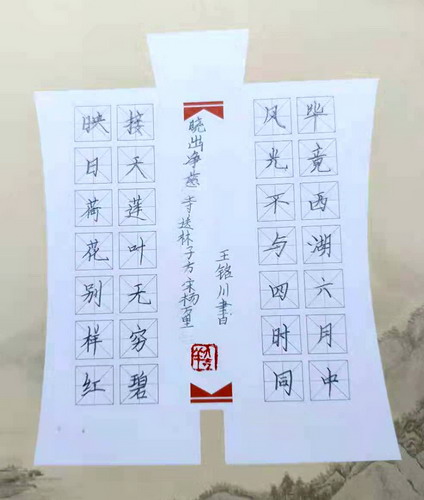 毕竟西湖六月中
风光不与四时同
王铭川書
晓出净慈寺送林子方 宋杨万里
接天莲叶无穷碧
映日荷花别样红